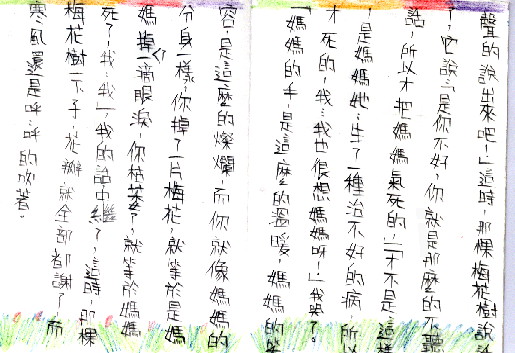 聲的說出來吧!」這時,那棵梅花樹說
了,它說:「是你不好,你就是那麼的不聽
話,所以才把媽媽氣死的,「才不是這樣
,是媽媽她…生了一種治不好的病,所以
才死的,我…我也很想媽媽呀!」我哭了。
「媽媽的手,是這麼的溫暖,媽媽的笑
容,是這麼的燦爛,而你就像媽媽的
分身一樣,你掉了一片梅花,就等於是媽
媽掉一滴眼淚,你枯萎了,就等於媽媽
死了!我…我」,我的話中繼了,這時,那棵
梅花樹一下子,花瓣就全部都謝了,而
寒風還是呼…呼的吹著。